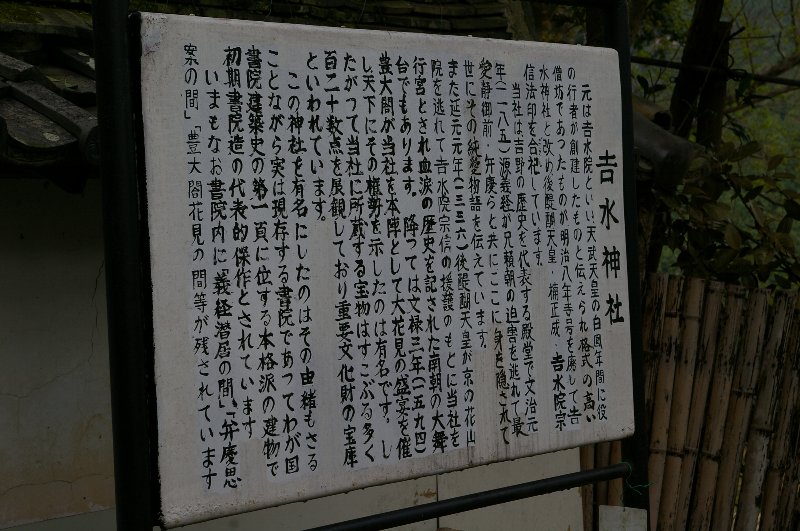 𠮷水神社
元は𠮷水院といい、天武天皇の白鳳年間に役
の行者が創建したものと伝えられ格式の高い
僧坊であったものが明治八年寺号を廃して𠮷
水神社と改め後醍醐天皇・楠正成・𠮷水院宗
信法印を合祀しています。
当社は吉野の歴史を代表する殿堂で文治元
年(一一八五)源義経が兄頼朝の迫害を逃れて最
愛静御前・弁慶らと共にここに身を隠されて
世にその純愛物語を伝えています。
また延元元年(一三三六)後醍醐天皇が京の花山
院を逃れて𠮷水院宗信の援護のもとに当社を
行宮とされ血涙の歴史を記された南朝の大舞
台でもあります。降っては文禄三年(一五九四)
豊太閤が当社を本陣として大花見の盛宴を催
し天下にその権勢を示したのは有名です。し
たがって当社に所蔵する宝物はすこぶる多く
百二十数点を展観しており重要文化財の宝庫
といわれています。
この神社を有名にしたのはその由緒もさる
ことながら実は現存する書院であってわが国
書院建築史の第一頁に位する本格派の建物で
初期書院造の代表的傑作とされています
いまもなお書院内に「義経潜居の間」、「弁慶思
案の間」「豊太閤花見の間等が残されています